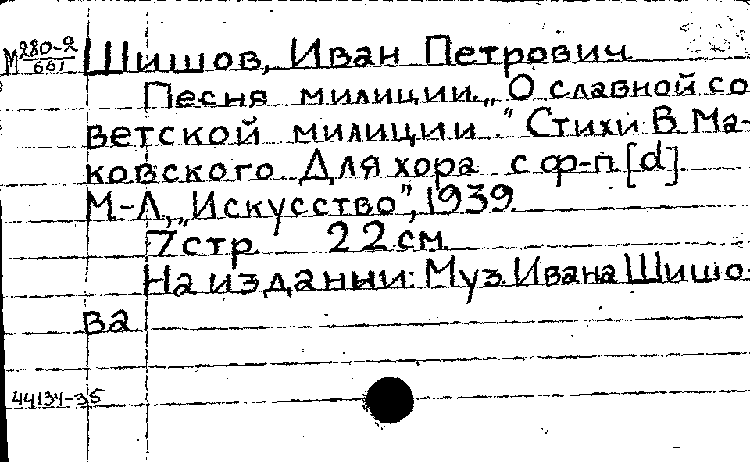 М 280-2 Шишов, Иван Петрович
661
Песня милиции. „О славной со-
ветской милиции." Стихи В. Ма-
ковского. Для хора с ф-п. [d].
М-Л, „Искусство", 1939.
7 стр 22 см
На издании: Муз. Ивана Шишо-
ва
44134-35